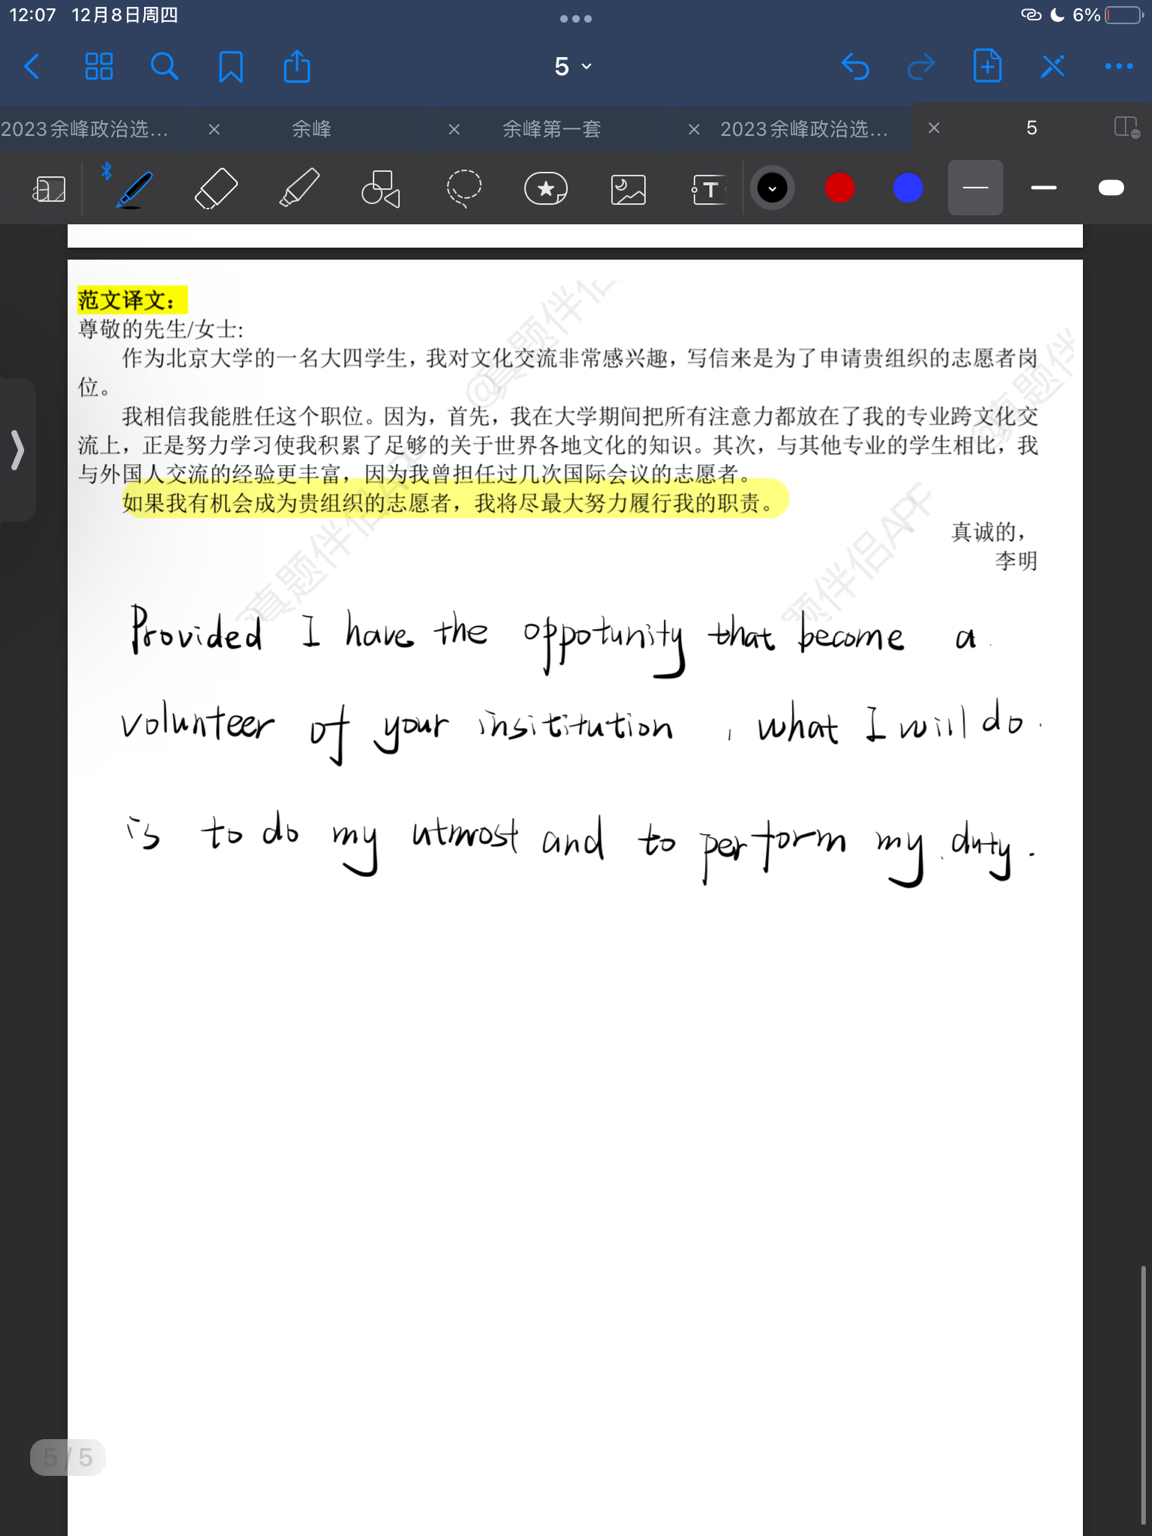 12:07 12月8日周四
6%
5
2023余峰政治选...
余峰
余峰第一套
2023余峰政治选...
5
T
范文译文：
尊敬的先生/女士:
作为北京大学的一名大四学生，我对文化交流非常感兴趣，写信来是为了申请贵组织的志愿者岗
位。
我相信我能胜任这个职位。因为，首先，我在大学期间把所有注意力都放在了我的专业跨文化交
流上，正是努力学习使我积累了足够的关于世界各地文化的知识。其次，与其他专业的学生相比，我
与外国人交流的经验更丰富，因为我曾担任过几次国际会议的志愿者。
如果我有机会成为贵组织的志愿者，我将尽最大努力履行我的职责。
真诚的，
李明
@真题伴侣
@真题伴
@真题伴侣APF
题伴侣APF
Provided I have the oppotunity that become a
volunteer of your insititution , what I will do
is to do my utmost and to perform my duty.
5 / 5